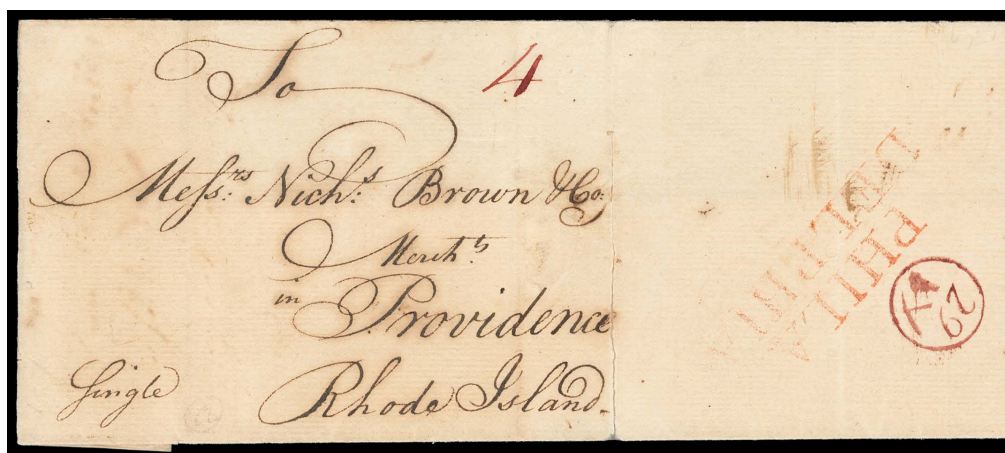 To
4
Messrs: Nichs: Brown & Co:
Mercht.s
in
Providence
Rhode Island.
Single
PHILA
DELPHIA
29